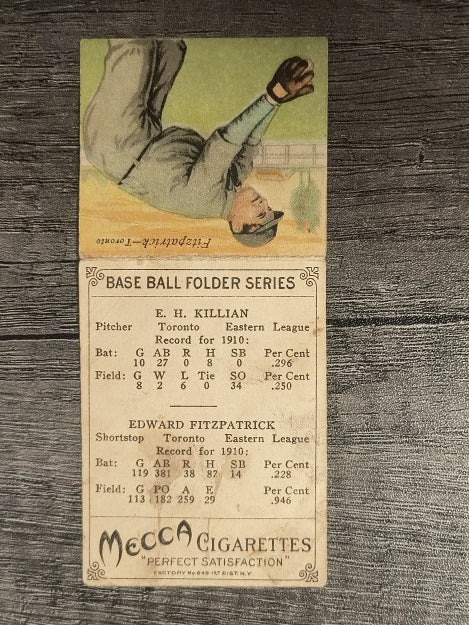 Fitzpatrick—Toronto
BASE BALL FOLDER SERIES
E. H. KILLIAN
Pitcher Toronto Eastern League
Record for 1910:
Bat: G AB R H SB Per Cent
10 27 0 8 0 .296
Field: G W L Tie SO Per Cent
8 2 6 0 34 .250
EDWARD FITZPATRICK
Shortstop Toronto Eastern League
Record for 1910:
Bat: G AB R H SB Per Cent
119 381 38 87 14 .228
Field: G PO A E Per Cent
113 182 259 29 .946
MECCA CIGARETTES
"PERFECT SATISFACTION"
FACTORY No 649 1ST DIST. N.Y.